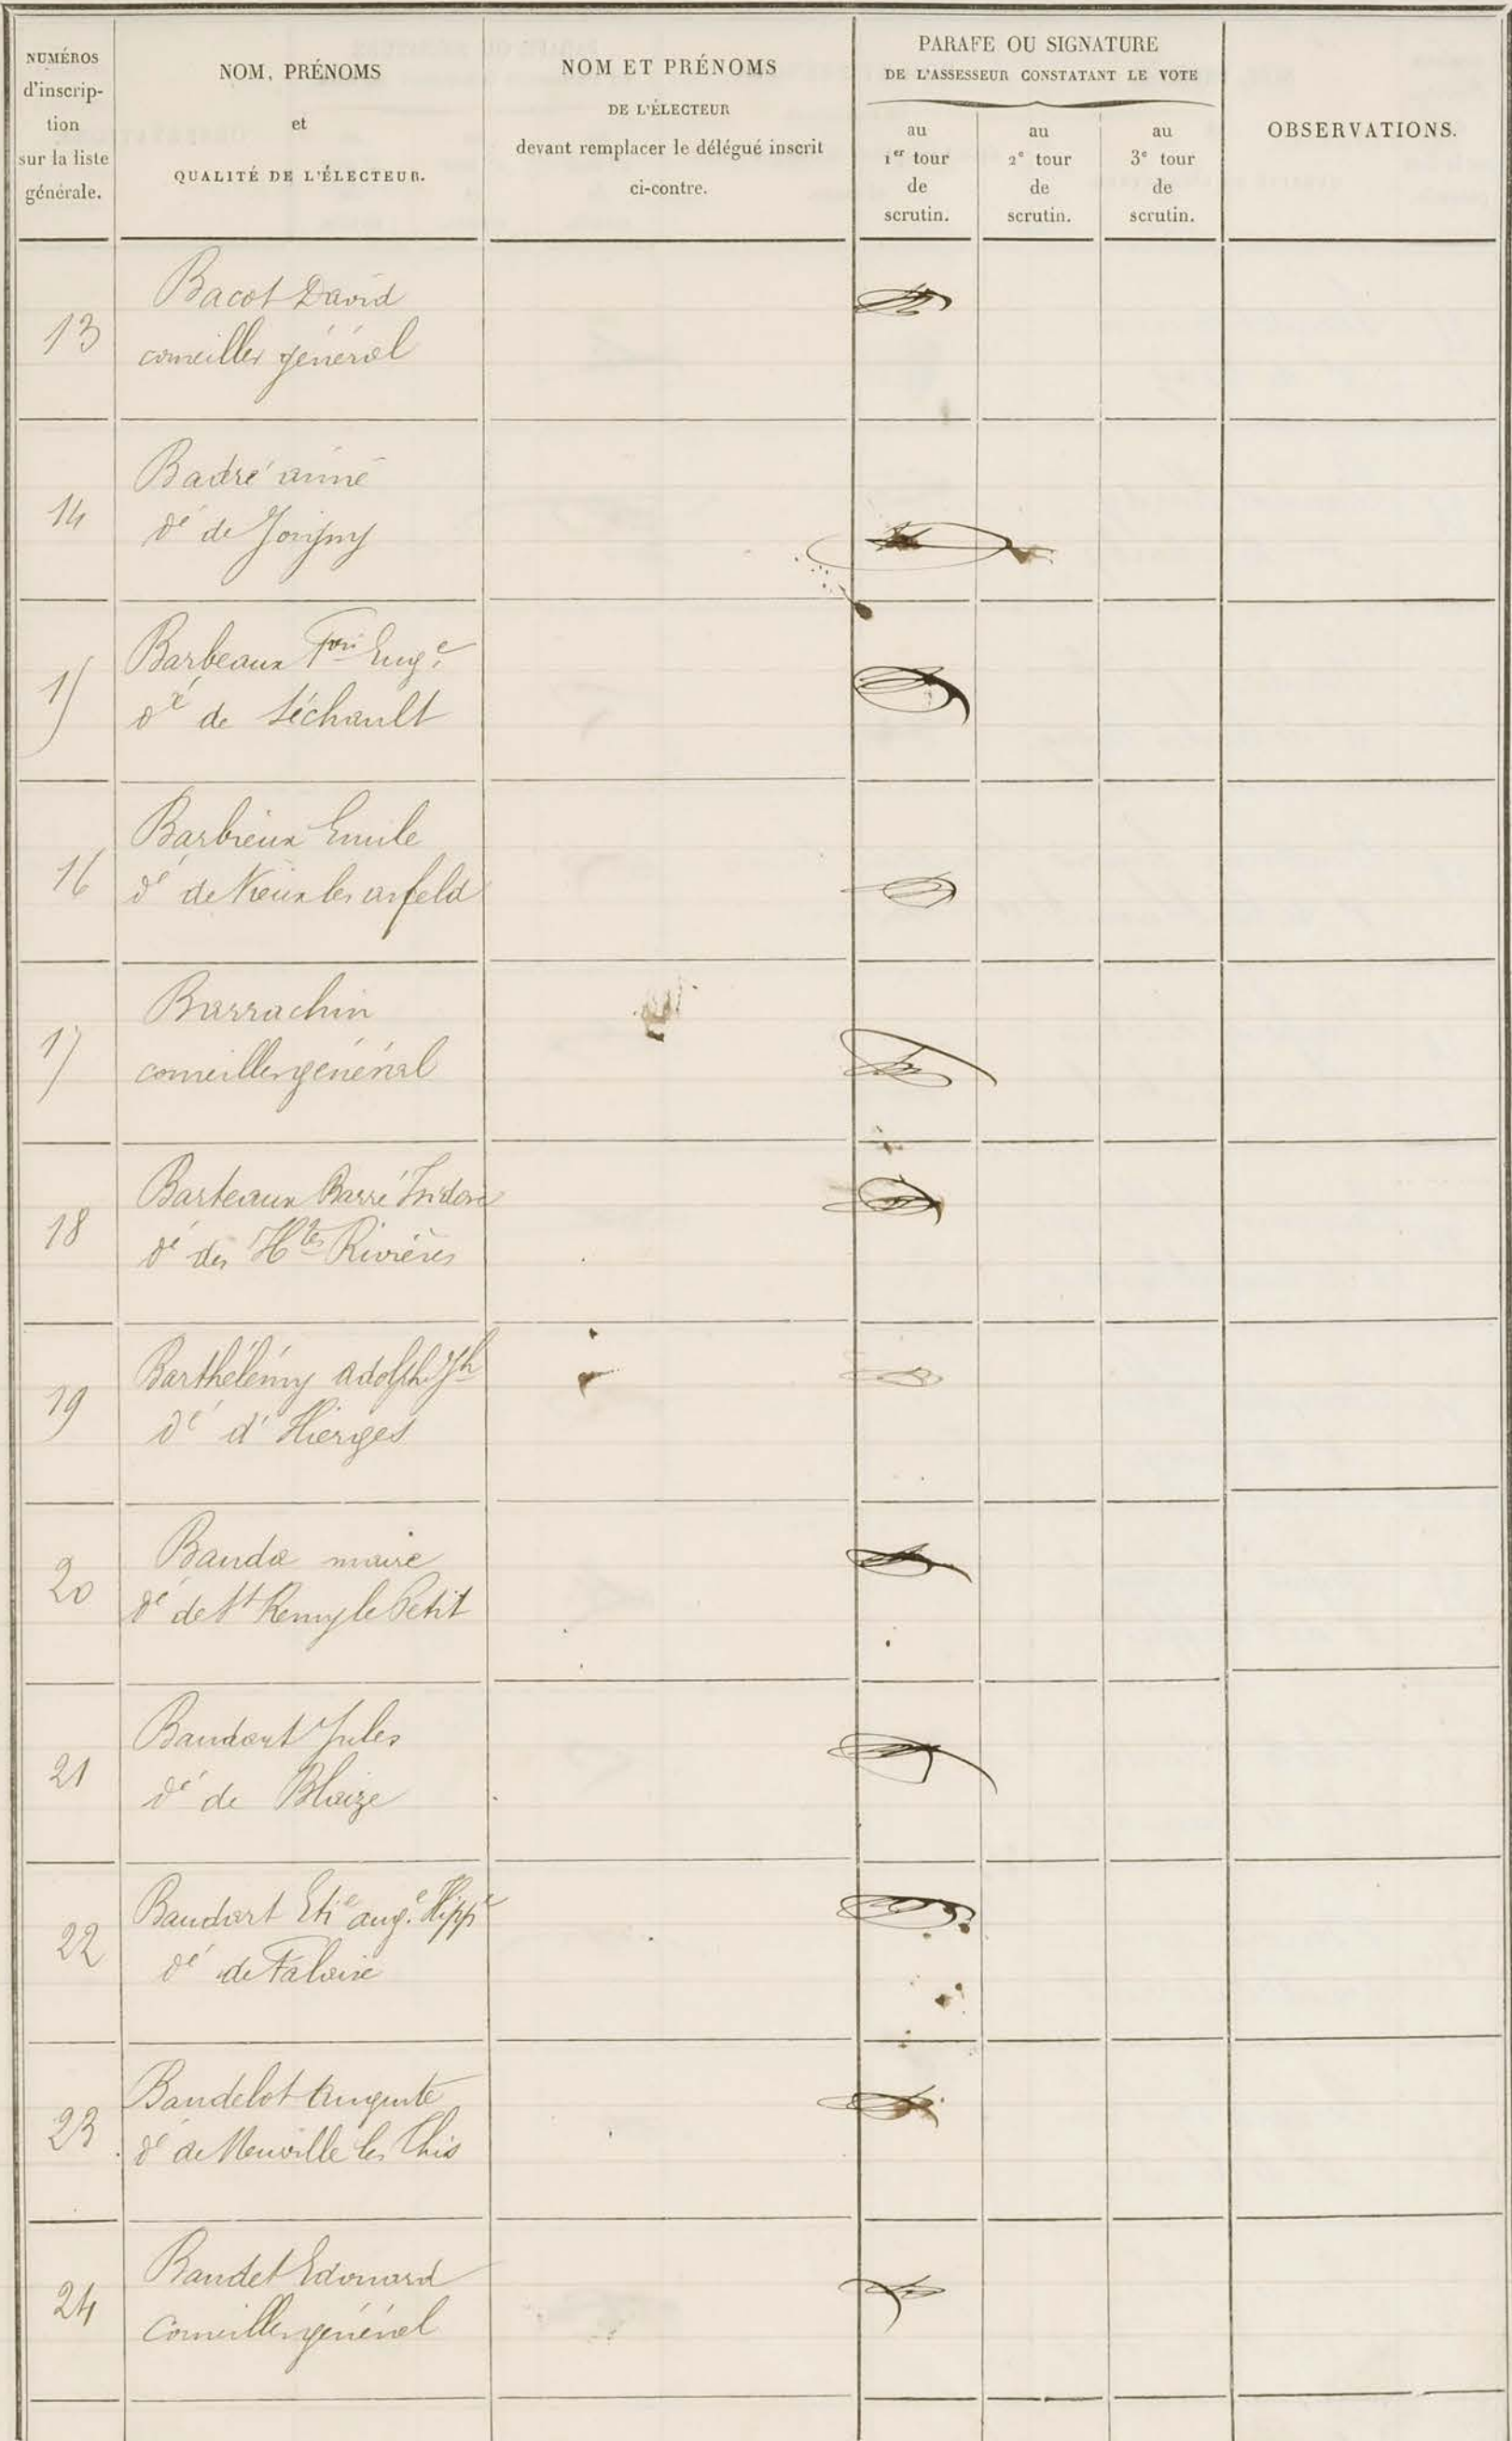 NUMÉROS
d'inscrip-
tion
sur la liste
générale.
NOM, PRÉNOMS
et
QUALITÉ DE L'ÉLECTEUR.
NOM ET PRÉNOMS
DE L'ÉLECTEUR
devant remplacer le délégué inscrit
ci-contre.
PARAFE OU SIGNATURE
DE L'ASSESSEUR CONSTATANT LE VOTE
au
1er tour
de
scrutin.
au
2e tour
de
scrutin.
au
3e tour
de
scrutin.
OBSERVATIONS.
13
Bacot David
conseiller général
14
Badré aimé
dé de Jonigny
15
Barbeaux Fois Euge
dé de Séchault
16
Barbieux Emile
dé de Vieux les asfeld
17
Barrachin
conseiller général
18
Barteaux Barré Isidore
dé des Htes Rivières
19
Barthélémy adolph. Jh
dé d'Hierges
20
Banda maire
dé de St Remy le Petit
21
Baudart Jules
dé de Blaize
22
Baudart Etie auge Hippe
dé de Falaise
23
Baudelot Auguste
dé de Neuville les This
24
Baudet Edouard
Conseiller général